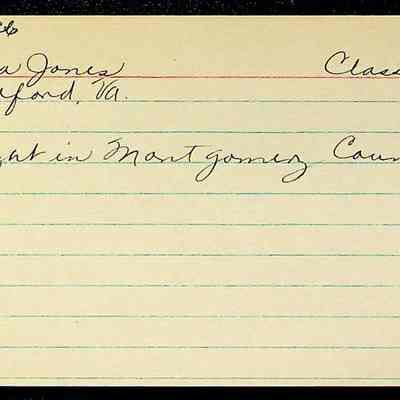 a Jones Class
ford, Va.
in Montgomery Coun